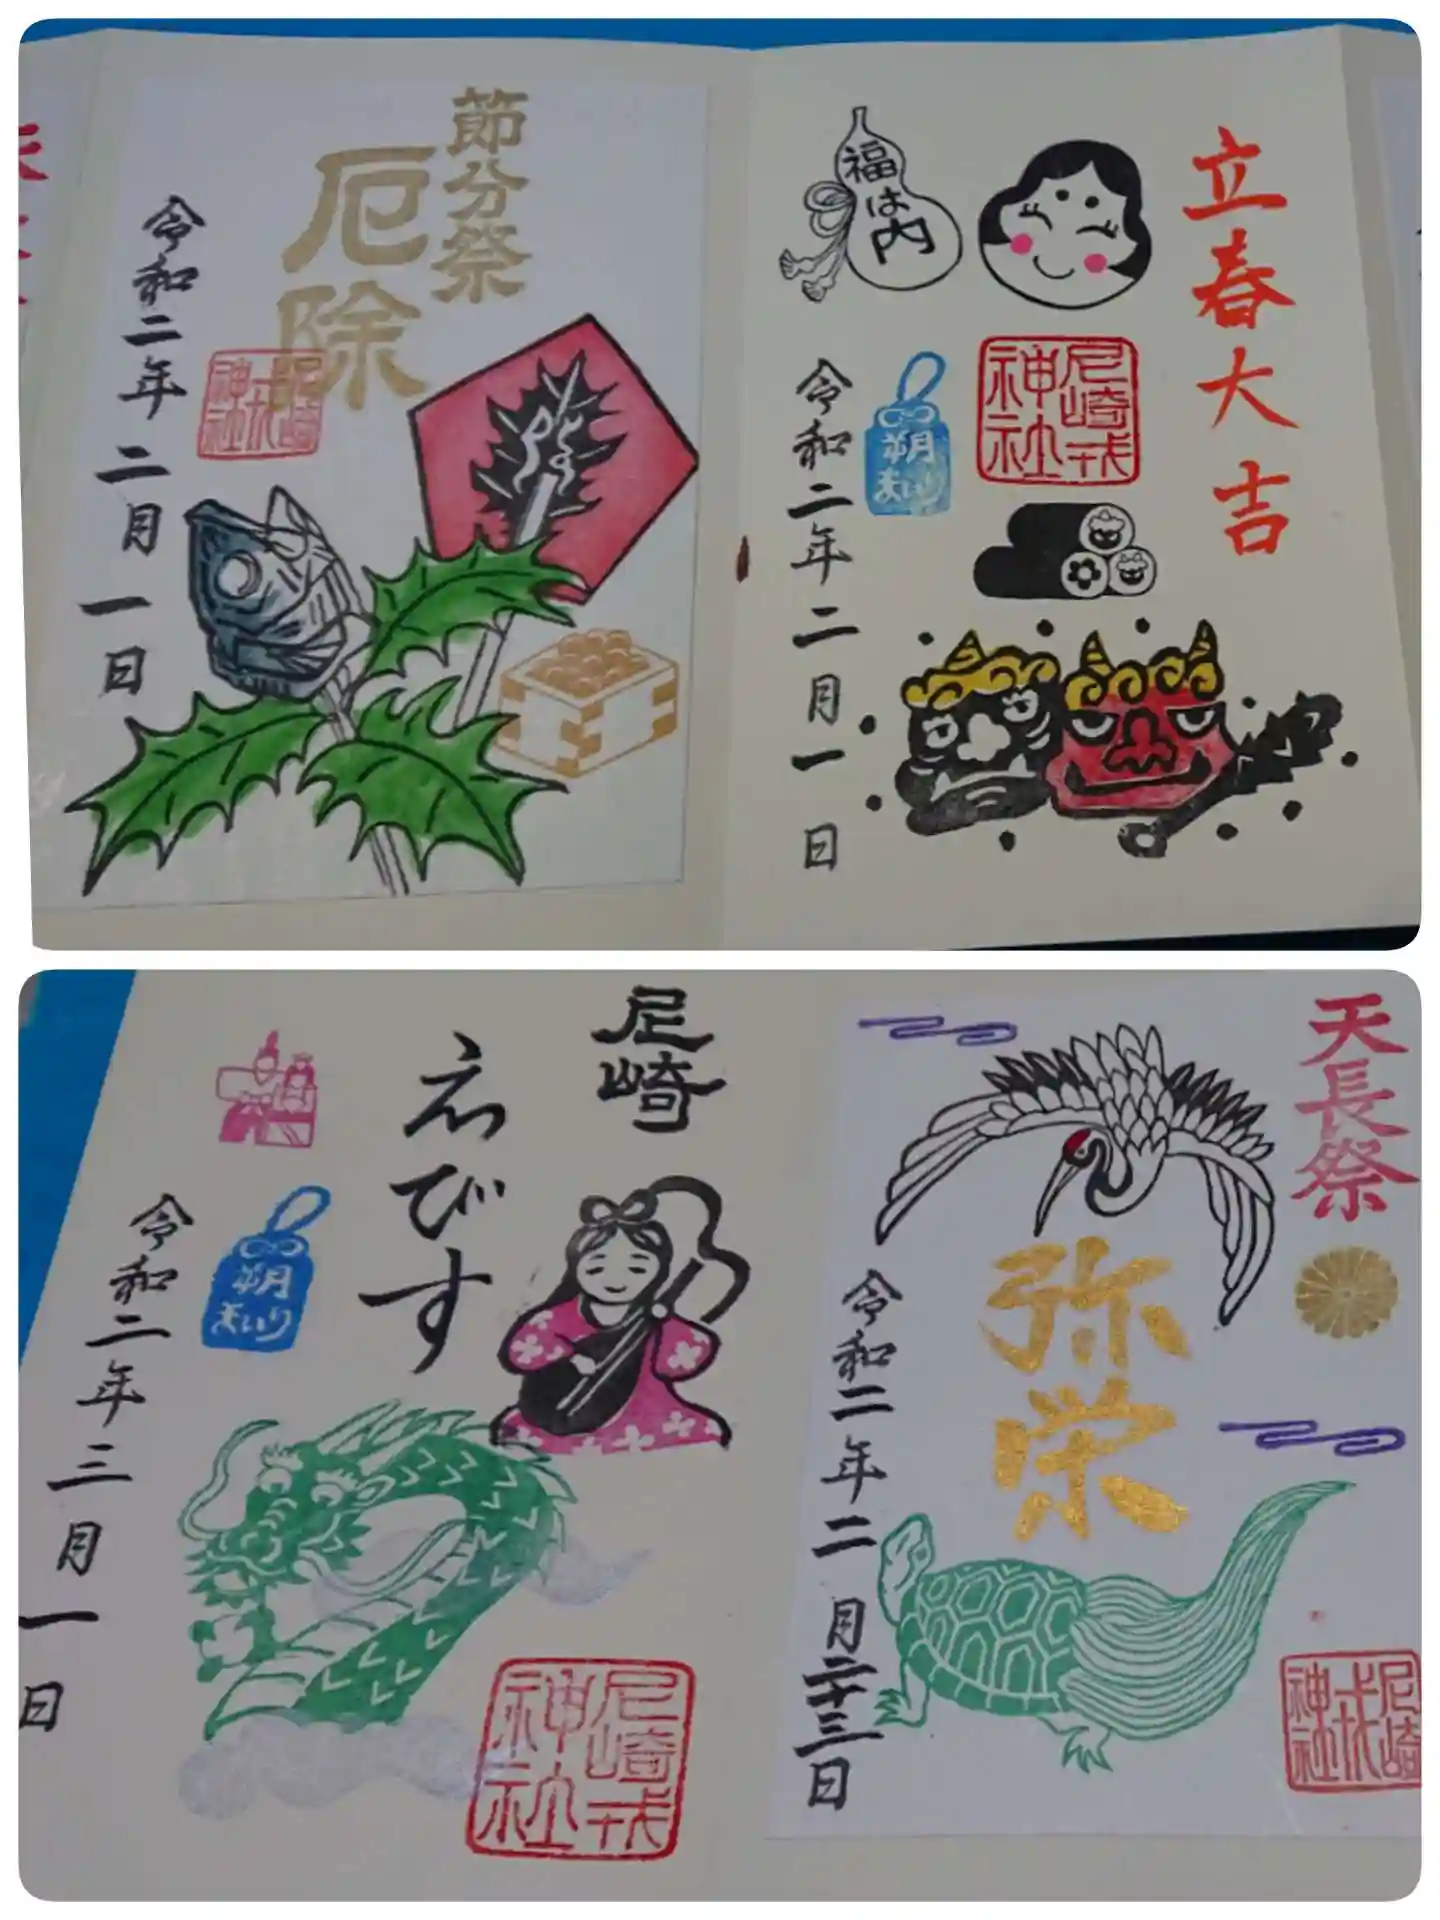 節分祭
厄除
尼崎
戎
神社
令和二年二月一日
立春大吉
福は内
尼崎戎
神社
朔月
まいり
令和二年二月一日
尼崎
えびす
朔月
まいり
令和二年三月一日
尼崎戎
神社
天長祭
弥栄
令和二年二月二十三日
尼崎
戎
神社